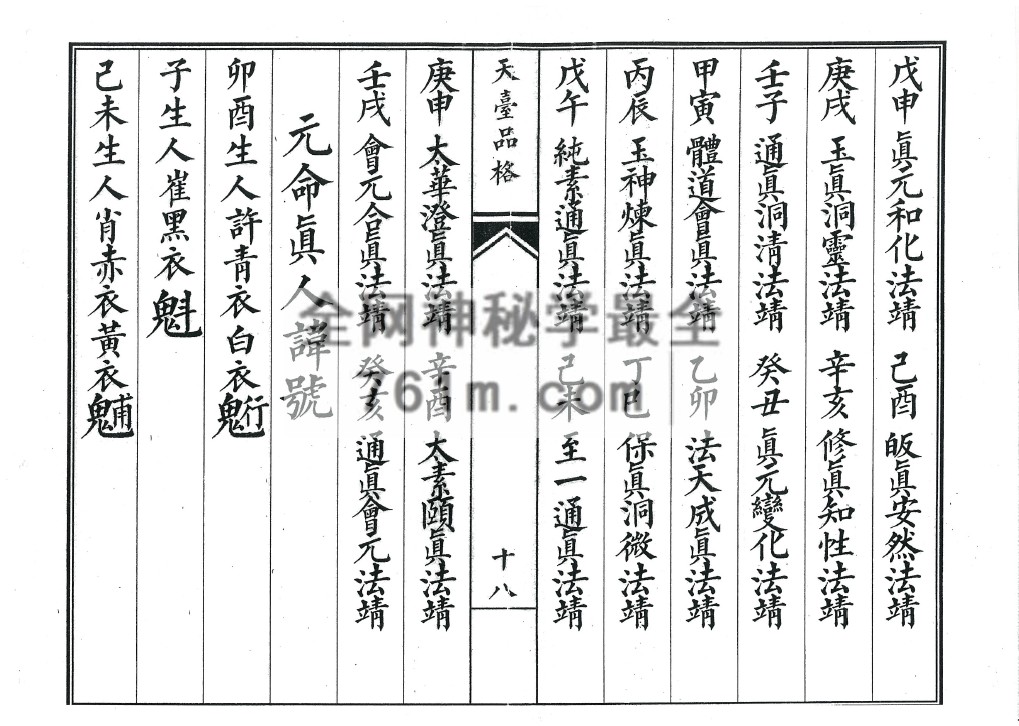 戊申 眞元和化法靖 己酉 皈眞安然法靖
庚戌 玉眞洞靈法靖 辛亥 修眞知性法靖
壬子 通眞洞清法靖 癸丑 眞元變化法靖
甲寅 體道會眞法靖 乙卯 法天成眞法靖
丙辰 玉神煉眞法靖 丁巳 保眞洞微法靖
戊午 純素通眞法靖 己未 至一通眞法靖
天臺品格 十八
庚申 太華澄眞法靖 辛酉 太素頤眞法靖
壬戌 會元合眞法靖 癸亥 通眞會元法靖
元命眞人諱號
卯酉生人許青衣白衣䰢
子生人崔黑衣魁
己未生人肖赤衣黃衣
全网神秘学最全
61m.com